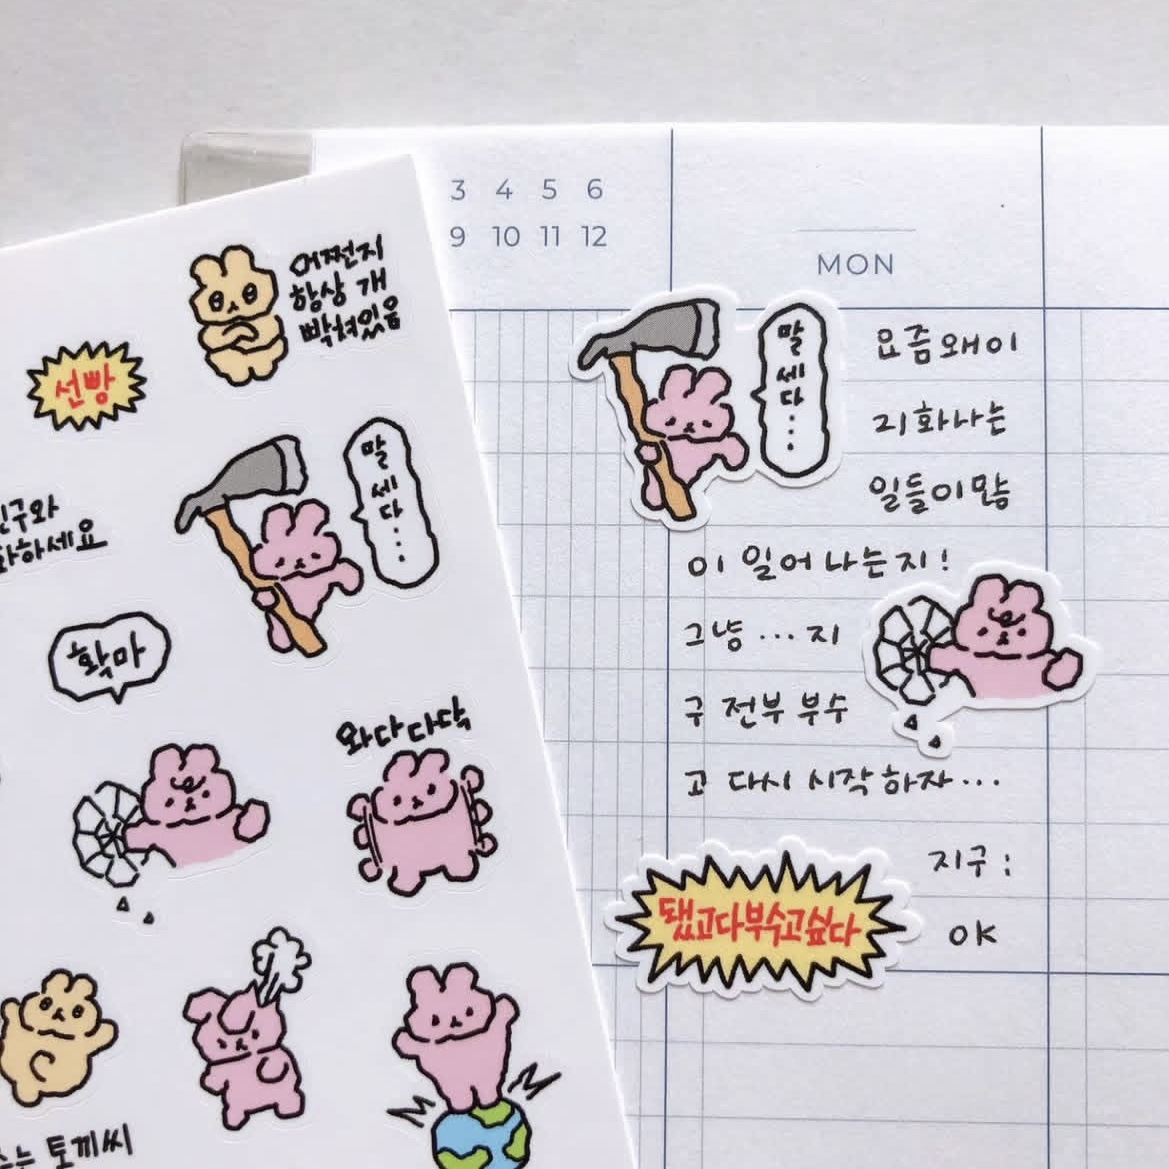 어쩐지
항상 개
빡쳐있음
선빵
말
세
다...
와
하세요
확마
와다다닥
는 토끼씨
3 4 5 6
9 10 11 12
MON
말
세
다...
요즘왜이
리화나는
일들이많
이 일어나는지!
그냥...지
구 전부 부수
고 다시 시작하자...
지구:
OK
됐고다부수고싶다